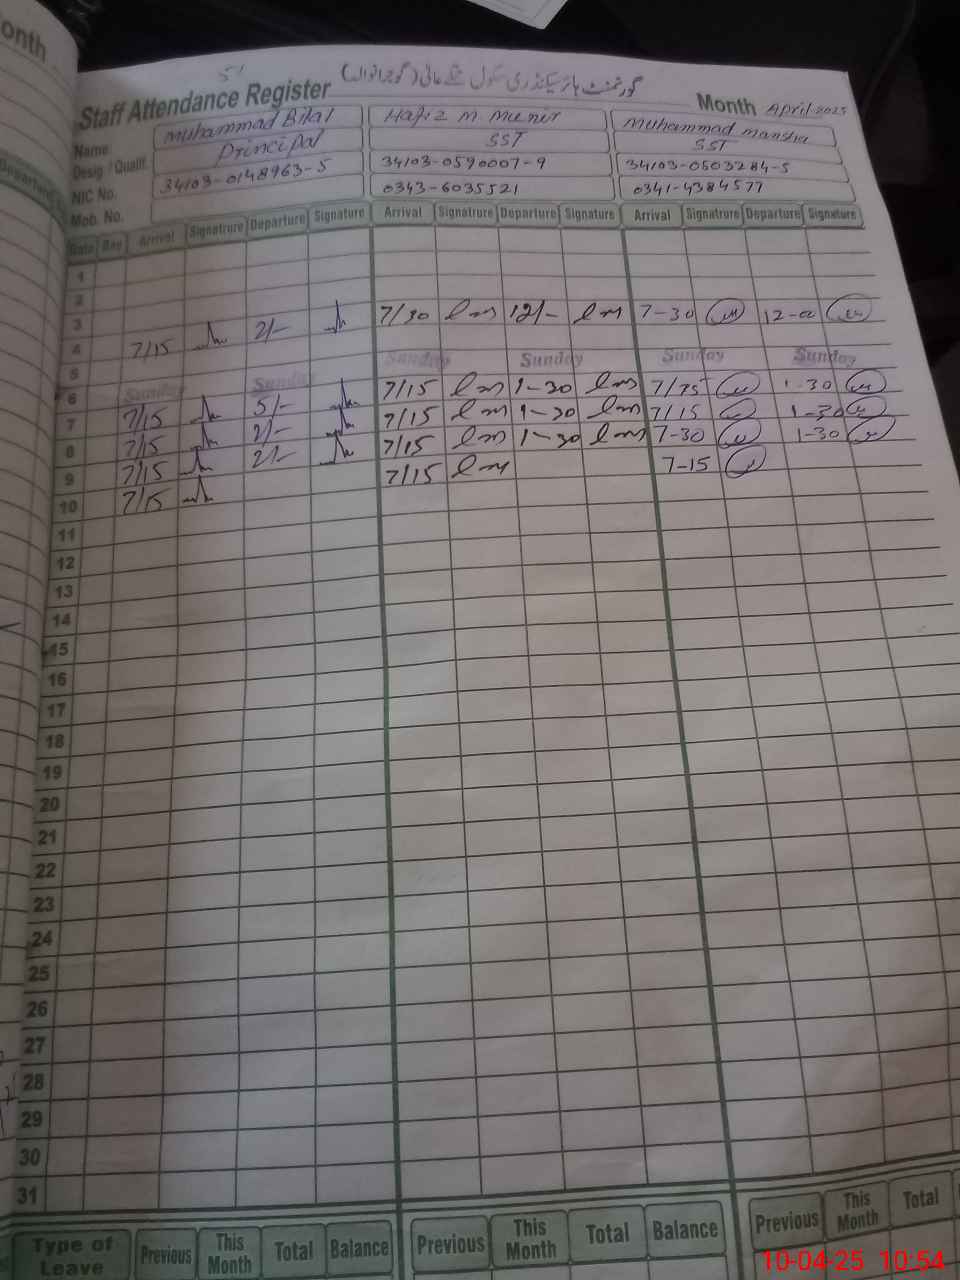 onth
51
گورنمنٹ ہائر سیکنڈری سکول
Staff Attendance Register
Month April-2025
Name Muhammad Bilal Hafiz M Munir Muhammad Mansha
Desig / Qualif. Principal SST SST
NIC No. 34103-0148963-5 34103-0590007-9 34103-0503284-5
Mob. No. 0343-6035521 0341-4384577
Departure
Date Day Arrival Signatrure Departure Signature Arrival Signatrure Departure Signature Arrival Signatrure Departure Signature
1
2
3 7/30 12/- 7-30 12-00
4 7/15 2/-
5 Sunday Sunday Sunday Sunday
6 Sunday Sunday 7/15 1-30 7/75 1-30
7 7/15 5/- 7/15 1-30 7/15 1-30
8 7/15 2/- 7/15 1-30 7-30 1-30
9 7/15 2/- 7/15 7-15
10 7/15
11
12
13
14
15
16
17
18
19
20
21
22
23
24
25
26
27
28
29
30
31
Type of Leave Previous This Month Total Balance Previous This Month Total Balance Previous This Month Total
10-04-25 10:54